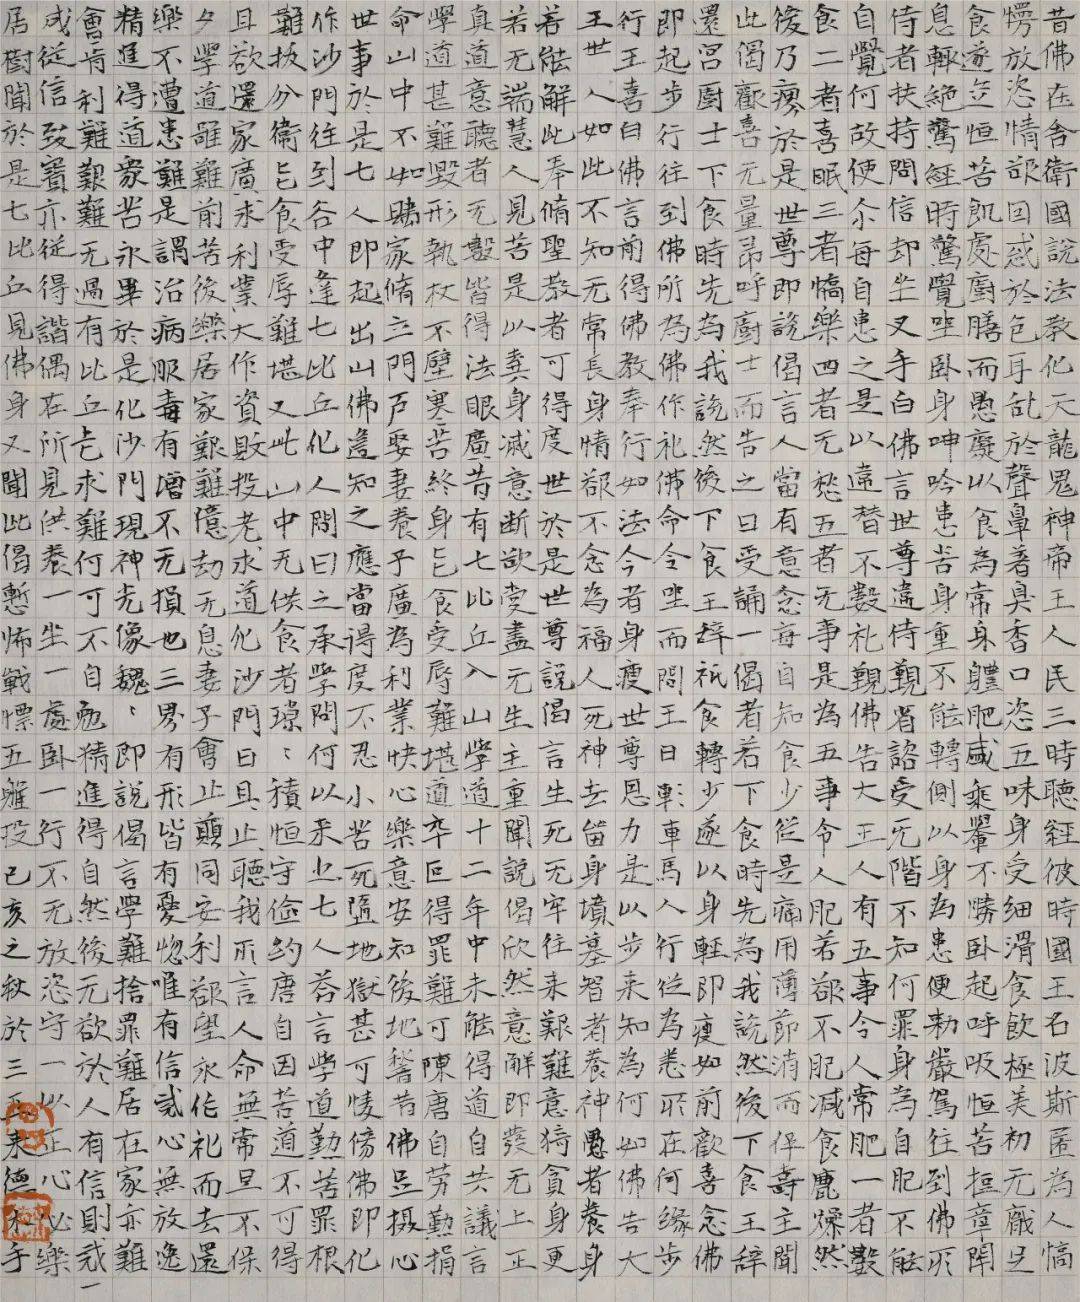 昔佛在舍衛國說法教化天龍鬼神帝王人民三時聽經彼時國王名波斯匿為人憍
慢放恣情欲回惑於色耳乱於聲鼻著臭香口恣五味身受細滑食飲極美初无厭足
食遂至恒苦飢處廚膳而愚癡以食為常身軆肥盛乘轝不勝卧起呼吸恒苦章
息輙絶驚經時驚覺坐卧身呻吟患苦身重不能轉側以身為患便勅嚴駕往到佛所
侍者扶持問信却坐叉手白佛言世尊違侍覲省諮受无階不知何罪身為自肥不能
自覺何故使尒每自患之是以遠替不數礼覲佛告大王人有五事令人常肥一者數
食二者喜眠三者憍樂四者无愁五者无事是為五事令人肥若欲不肥減食麁燥然
後乃瘦於是世尊即說偈言人當有意念每自知食少從是痛用薄節消而保壽主聞
此偈歡喜无量昂呼廚士而告之曰受誦一偈者若下食時先為我說然後下食王辞
還宮廚士下食時先為我說然後下食王辞衹食轉少遂以身輕即瘦如前歡喜念佛
即起步行往到佛所為佛作礼佛命令坐而問王曰車馬人行從為悉所在何緣步
行王喜白佛言前得佛教奉行如法今者身瘦世尊恩力是以步来知為何如佛告大
王世人如此不知无常長身情欲不念為福人死神去留身墳墓智者養神愚者養身
若能解此奉脩聖教者可得度世於是世尊說偈言生死无牢往来艱難意猗貪身更
若无端慧人見苦是以棄身減意断欲受盡无生主重聞說偈欣然意解即發无上正
真道意聽者无數皆得法眼廣昔有七比丘入山學道十二年中未能得道自共議言
學道甚難毀形執杖不壁寒苦終身乞食受辱難堪道卒叵得罪難可陳唐自劳勤捐
命山中不如歸家脩立門戶娶妻養子廣為利業快心樂意安知後地昔佛足摄心
世事於是七人即起出山佛遙知之應當得度不忍小苦死墮地獄甚可悽傍佛即化
作沙門往到谷中逢七比丘化人問曰之承學問何以来出七人荅言學道勤苦罪根
難拔分衛乞食受辱難堪又此山中无供食者璟、積恒守儉約唐自因苦道不可得
且欲還家廣求利業大作資敗投老求道化沙門曰且止聽我所言人命無常旦不保
夕學道雖難前苦後樂居家艱難億劫无息妻子會止顛同安利欲望永作礼而去還
樂不遭患難是謂治病服毒有增不无損也三界有形皆有憂惚唯有信戒心無放逸
精進得道衆苦永畢於是化沙門現神光像魏、即說偈言學難捨罪難居在家亦難
會肯利難艱難无過有比丘乞求難何可不自勉精進得自然後元欲於人有信則戒一
戒從信致寶亦從得諧偶在所見供養一坐一處卧一行不无放恣守一以正心心樂
居樹間於是七比丘見佛身又聞此偈慙怖戰慄五體投己亥之秋於三東德手